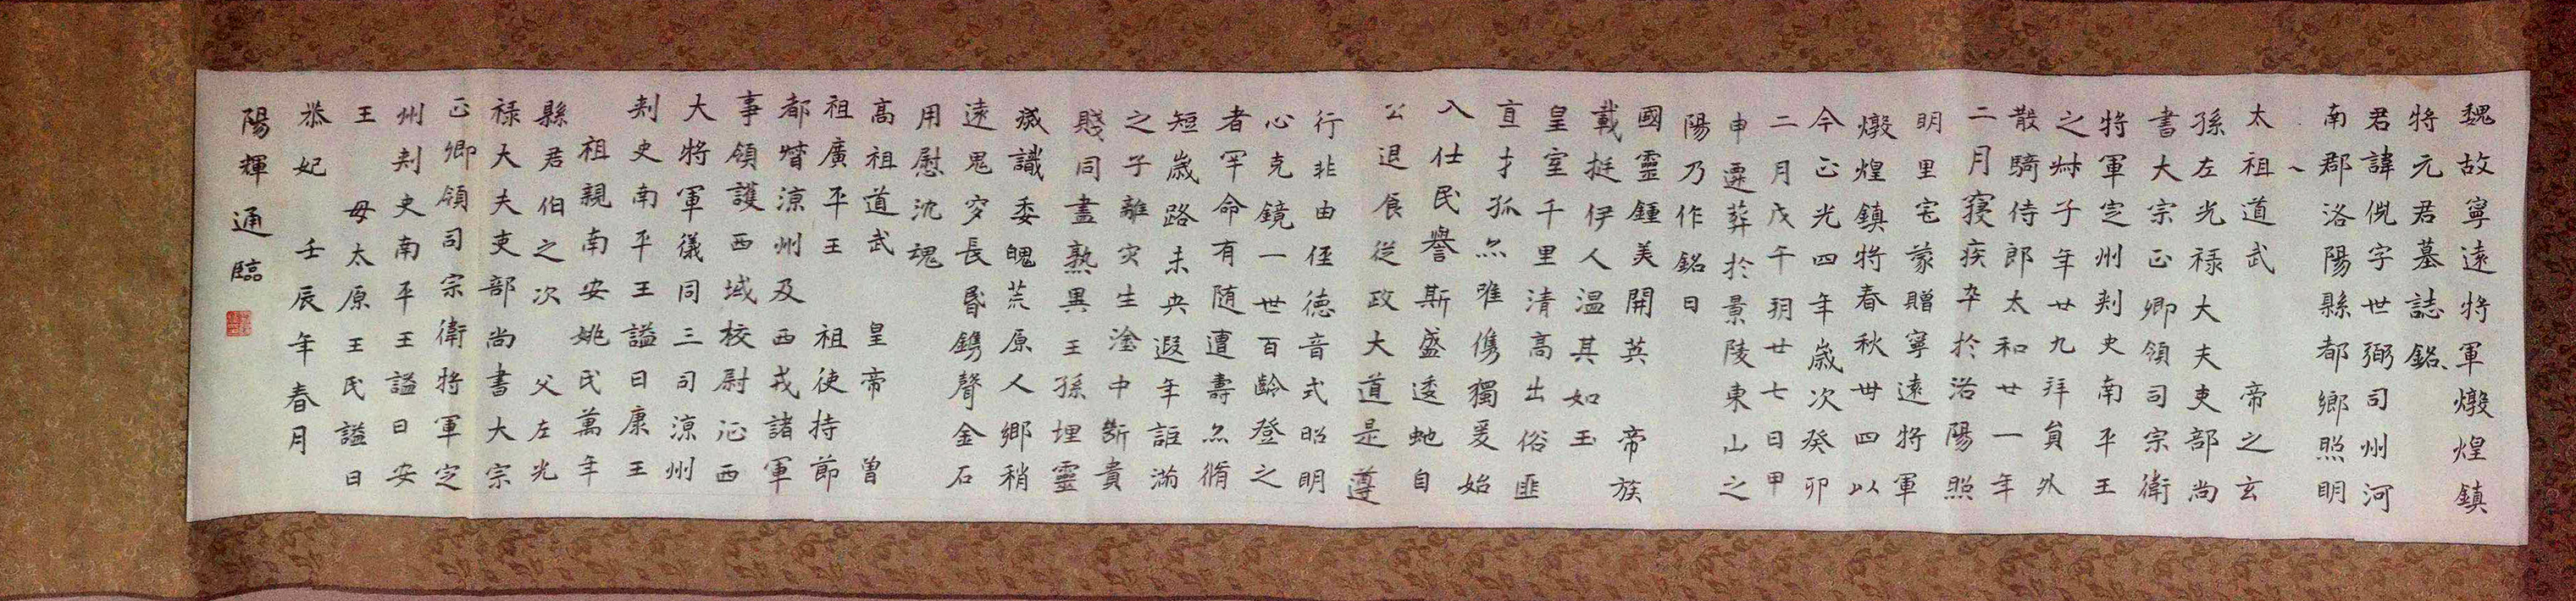 魏故寧遠將軍燉煌鎮
將元君墓誌銘
君諱倪字世弼司州河
南郡洛陽縣都鄉照明
太祖道武　帝之玄
孫左光禄大夫吏部尚
書大宗正卿領司宗衛
將軍定州刾史南平王
之叔子年廿九拜員外
散騎侍郎太和廿一年
二月寑疾卒於洛陽照
明里宅蒙贈寧遠將軍
燉煌鎮將春秋丗四以
今正光四年歲次癸卯
二月戊午玥廿七日甲
申遷葬於景陵東山之
陽乃作銘日
國靈鍾美開英　帝族
載挺伊人温其如玉
皇室千里清高出俗匪
亘才孤亦唯儁獨爰始
入仕民譽斯盛逶虵自
公退食従政大道是遵
行非由徑德音式昭明
心克鏡一世百齡登之
者罕命有随遭壽亦脩
短歲路未央遐年詎滿
之子離灾生淦中斷貴
賤同盡熟異王孫埋靈
威識委魄荒原人鄉稍
遠鬼穸長昏鐫聲金石
用慰沈魂
高祖道武　皇帝　曾
祖廣平王　祖使持節
都督涼州及西戎諸軍
事領護西域校尉沁西
大將軍儀同三司涼州
刾史南平王謚日康王
祖親南安姚民萬年
縣君伯之次　父左光
禄大夫吏部尚書大宗
正卿領司宗衛將軍定
州刾史南平王謚日安
王　母太原王民謚日
恭妃　壬辰年春月
陽輝通臨